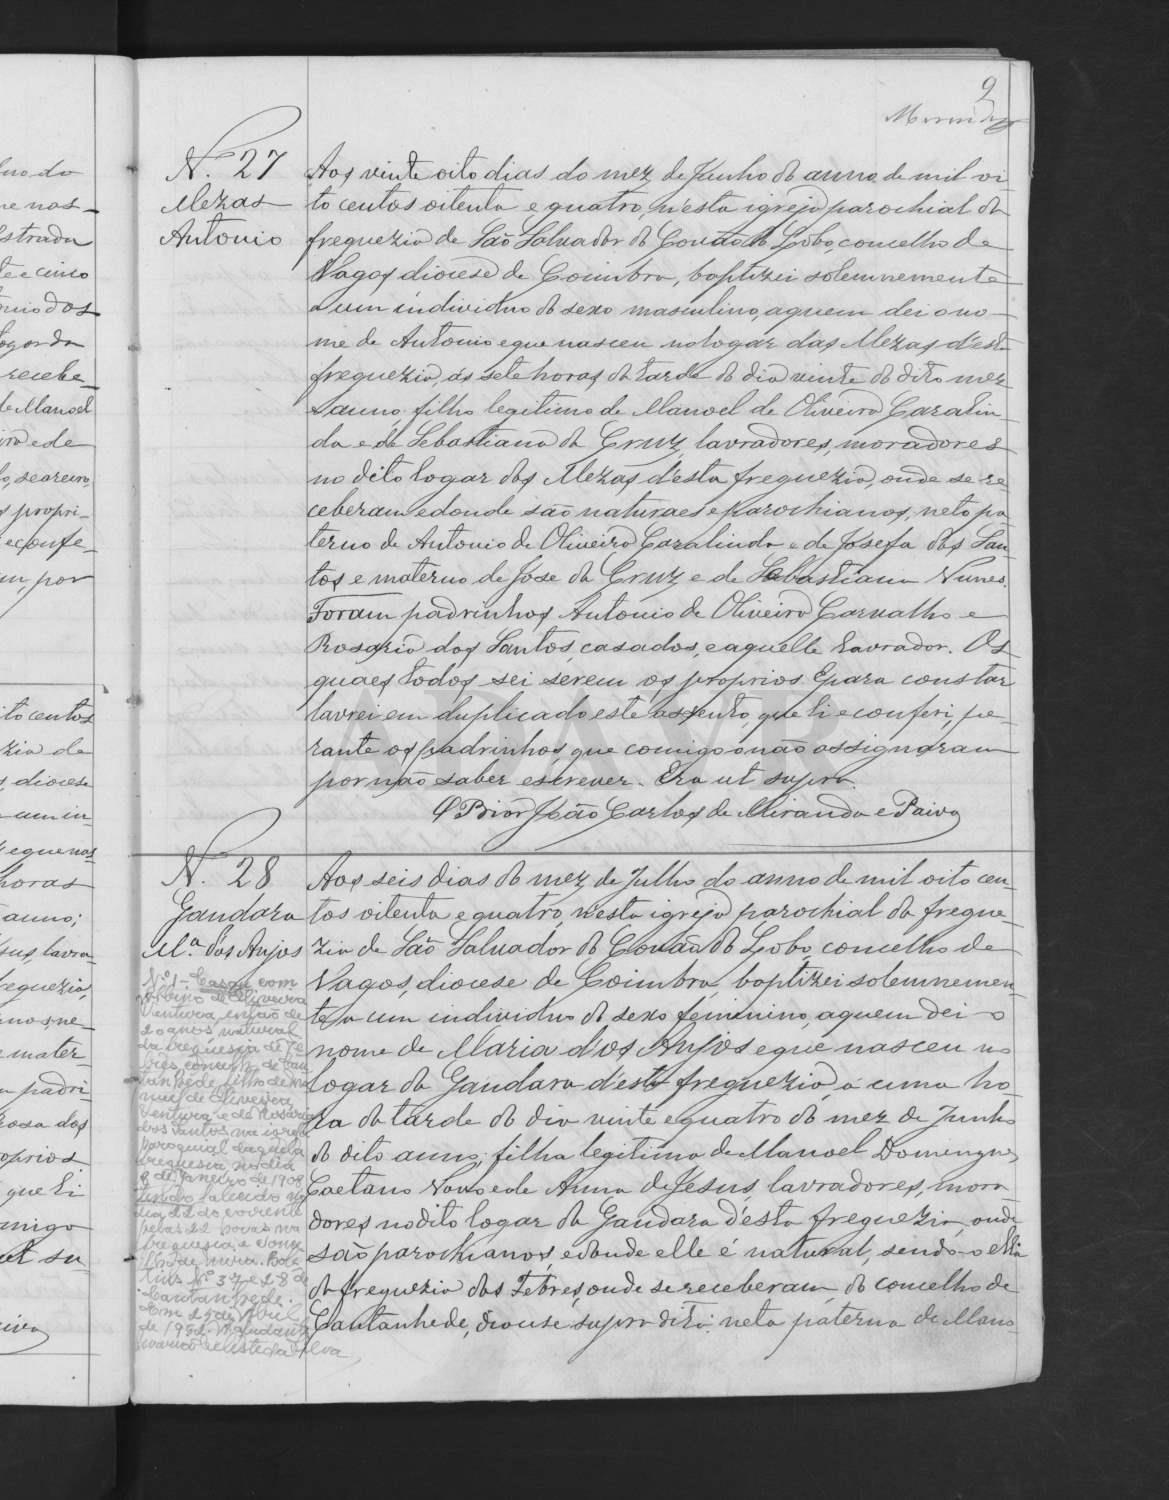 9
Miranda
N.º 27
Mezas
Antonio
Aos vinte oito dias do mez de Junho do anno de mil oi-
to centos oitenta e quatro, n'esta igreja parochial da
freguezia de São Salvador do Covão do Lobo, concelho de
Vagos, diocese de Coimbra, baptizei solemnemente
a um individuo do sexo masculino, a quem dei o no-
me de Antonio e que nasceu no logar das Mezas d'esta
freguezia, as sete horas da tarde do dia vinte do dito mez
e anno, filho legitimo de Manoel de Oliveira Caralin-
da e de Sebastiana da Cruz, lavradores, moradores
no dito logar das Mezas d'esta freguezia, onde se re-
ceberam e donde são naturaes e parochianos, neto pa-
terno de Antonio de Oliveira Caralinda e de Josefa dos San-
tos e materno de Jose da Cruz e de Sebastiana Nunes.
Foram padrinhos Antonio de Oliveira Carvalho e
Rosaria dos Santos, casados, e aquelle lavrador. Os
quaes todos sei serem os proprios. E para constar
lavrei em duplicado este assento, que li e conferi, pe-
rante os padrinhos, que comigo o não assignaram
por não saber escrever. Era ut supra.
O Prior João Carlos de Miranda e Paiva
N.º 28
Gandara
M.ª dos Anjos
Aos seis dias do mez de Julho do anno de mil oito cen-
tos oitenta e quatro, nesta igreja parochial da fregue-
zia de São Salvador do Covão do Lobo, concelho de
Vagos, diocese de Coimbra, baptizei solemnemen-
te a um individuo do sexo feminino, a quem dei o
nome de Maria d'os Anjos e que nasceu no
logar da Gandara d'esta freguezia, a uma ho-
ra da tarde do dia vinte e quatro do mez de Junho
do dito anno; filha legitima de Manoel Domingues
Caetano Novo e de Anna de Jesus, lavradores, mora-
dores no dito logar da Gandara d'esta freguezia, onde
são parochianos, e donde elle é natural, sendo-o ella
da freguezia das Febres, onde se receberam, do concelho de
Cantanhede, diocese supra dita: neta paterna de Mano-
N.º 1 - Casou com
Albino de Oliveira
Ventura, então de
20 anos, natural
da freguesia de Fe-
bres, concelho de Can-
tanhede, filho de Ma-
nuel de Oliveira
Ventura e de Rosaria
dos Santos, na igreja
paroquial daquela
freguesia, no dia
8 de Janeiro de 1908
tendo falecido no
dia 22 do corrente
pelas 22 horas na
freguesia e conce-
lho de Mira. Bole-
tins N.º 37 e 28 de
Cantanhede.
Em 25 de Abril
de 1952. O Ajudante
Silva
ADAVR